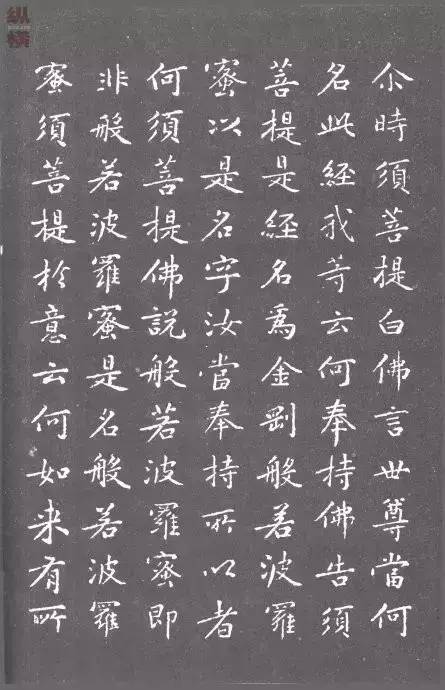 尒時須菩提白佛言世尊當何
名此經我等云何奉持佛告須
菩提是經名為金剛般若波羅
蜜以是名字汝當奉持所以者
何須菩提佛說般若波羅蜜即
非般若波羅蜜是名般若波羅
蜜須菩提於意云何如来有所
纵横